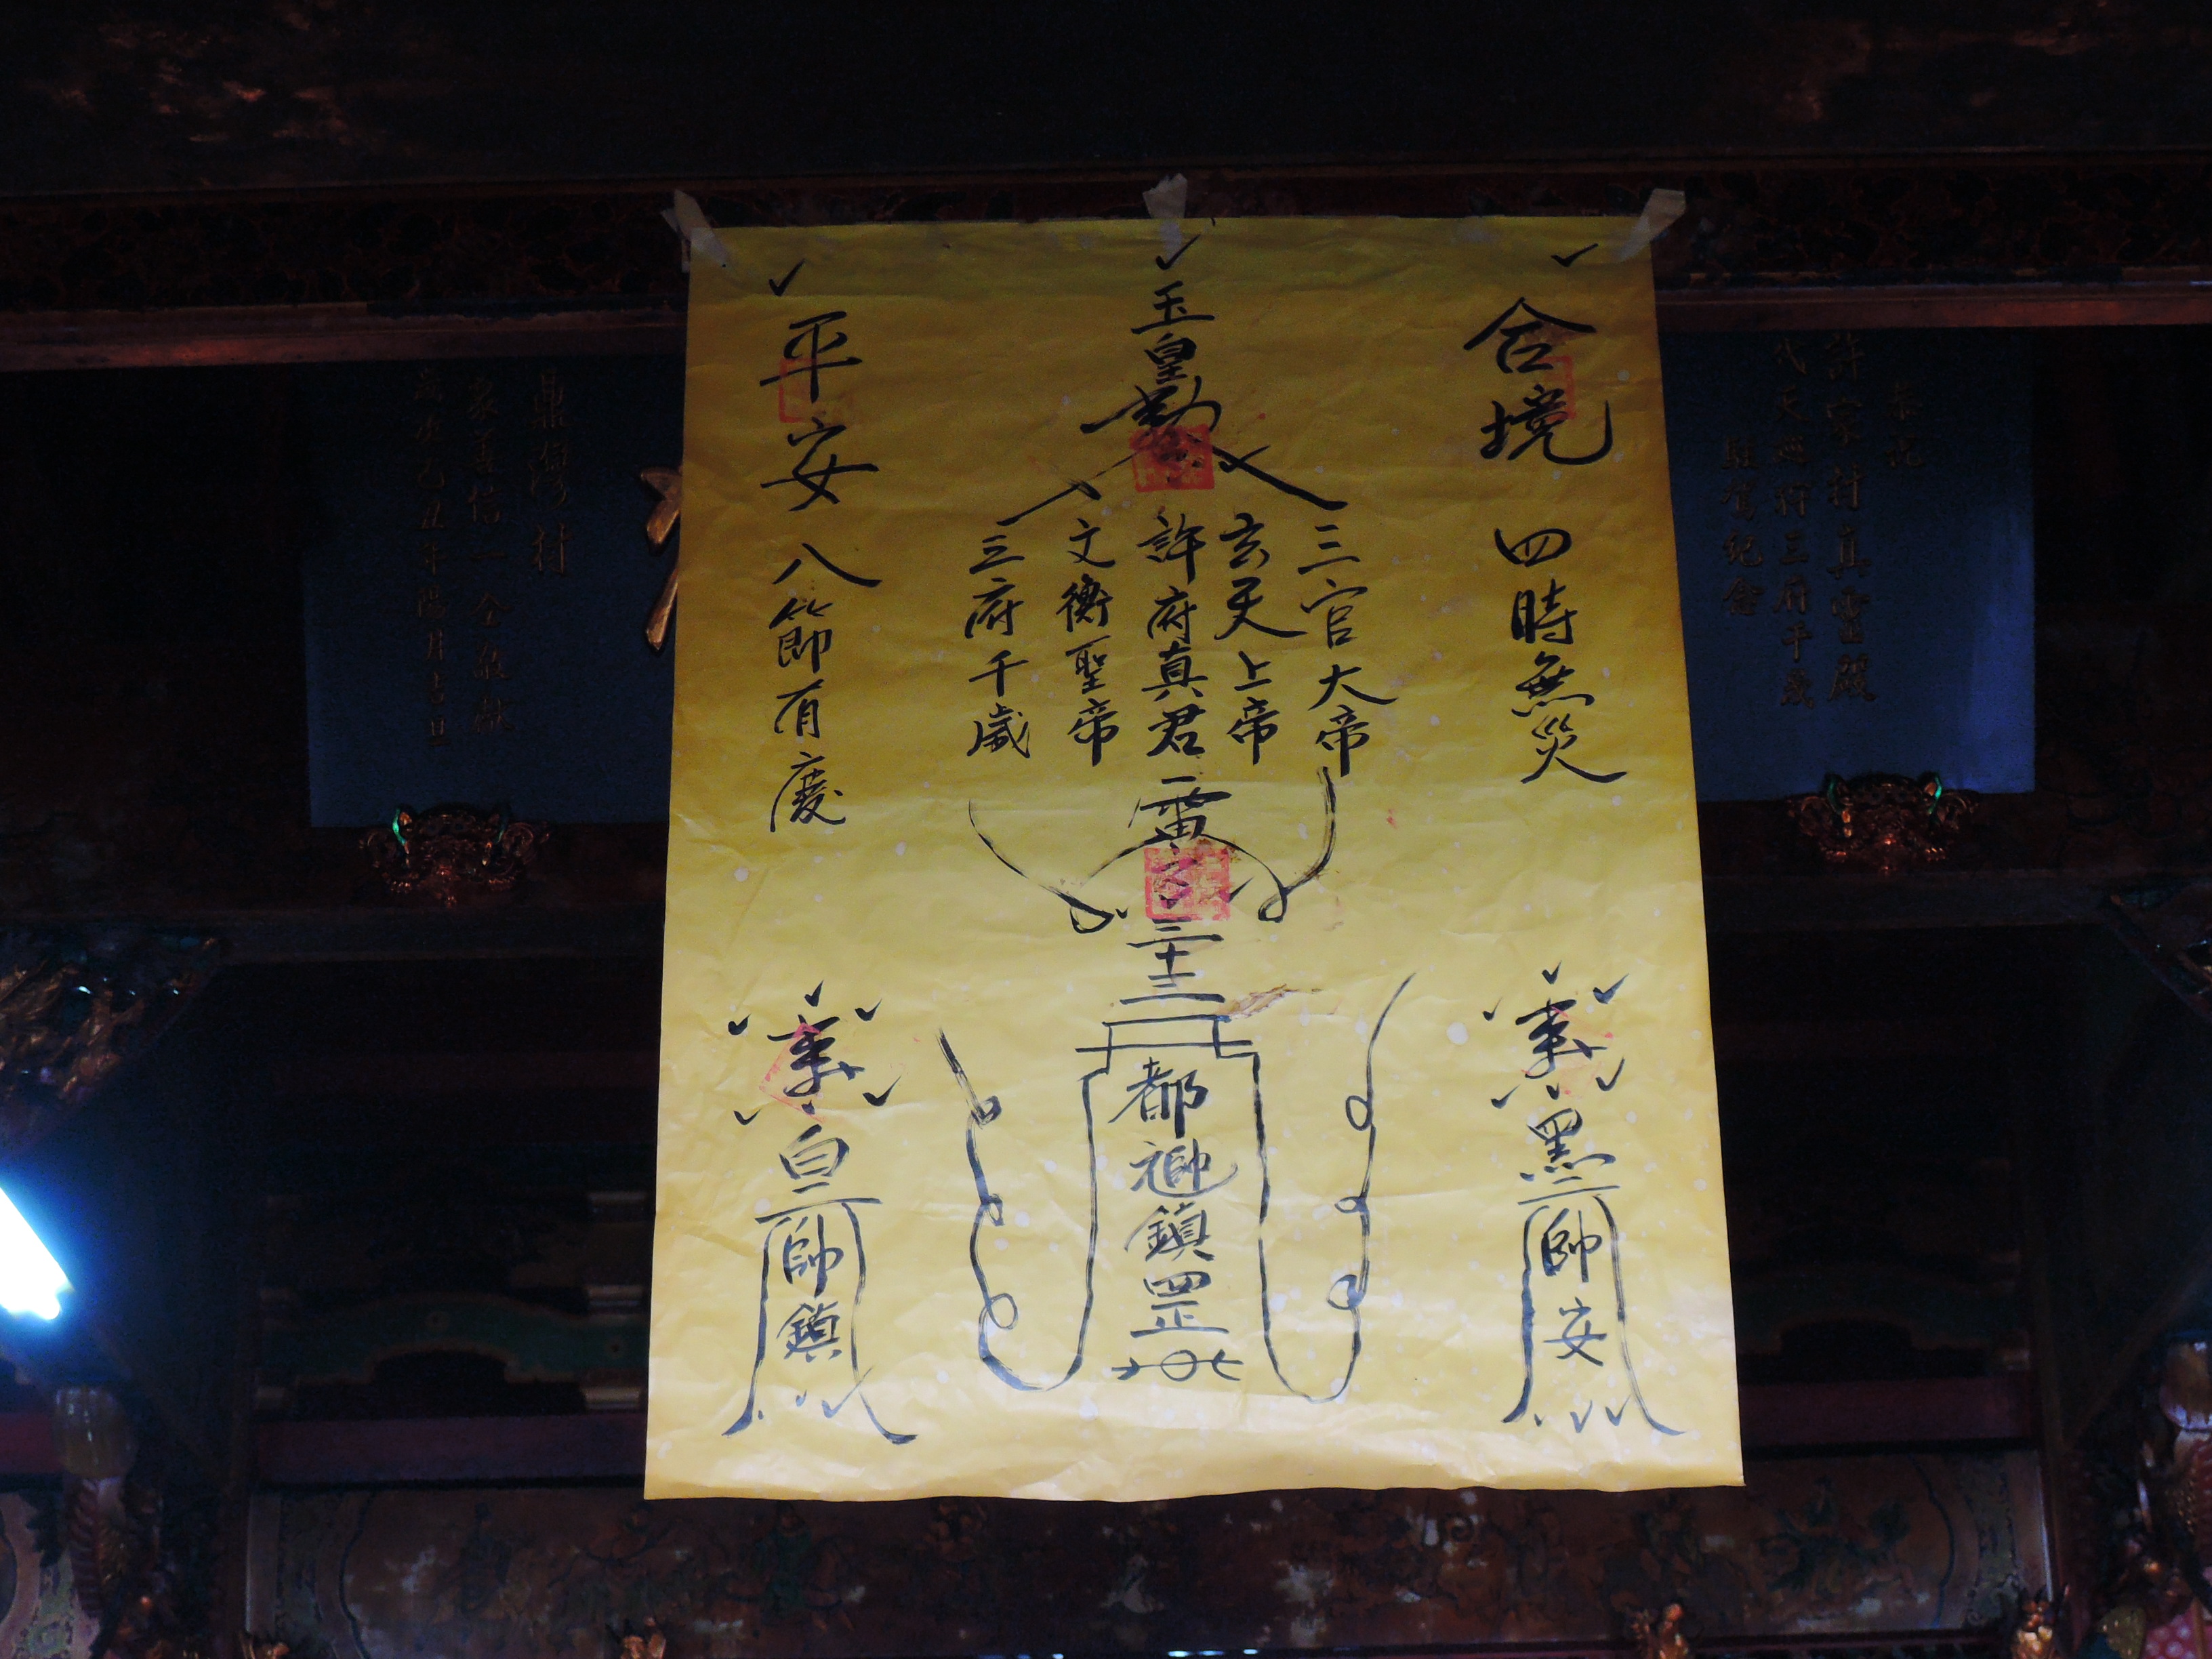 合境
四時無災
玉皇勅
三官大帝
玄天上帝
許府真君
文衡聖帝
三府千歲
雷
都
鎮罡
平安
八節有慶
黑
帥安
白
帥鎮
恭祝
許家村真靈殿
代天巡狩三府千歲
駐駕紀念
鼎灣村
眾善信一仝敬獻
歲次乙丑年陽月吉旦